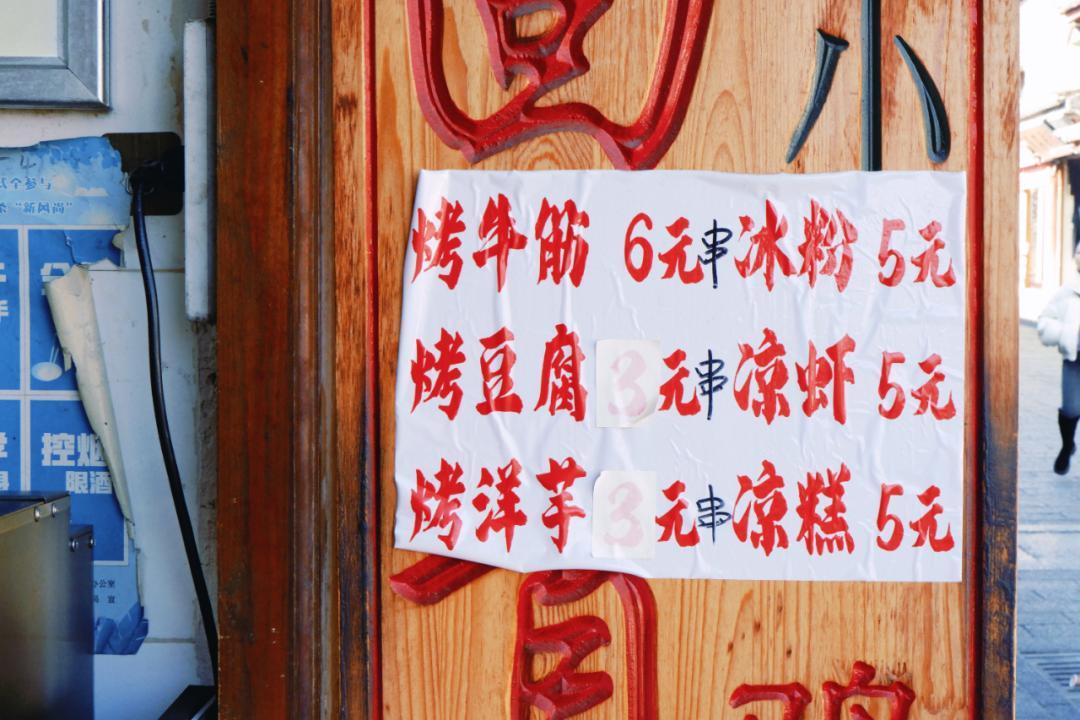 小
烤牛筋 6元串 冰粉 5元
烤豆腐 3元串 凉虾 5元
烤洋芋 3元串 凉糕 5元
式全参与
"新风尚"
控烟
眼酒
办公室
宣